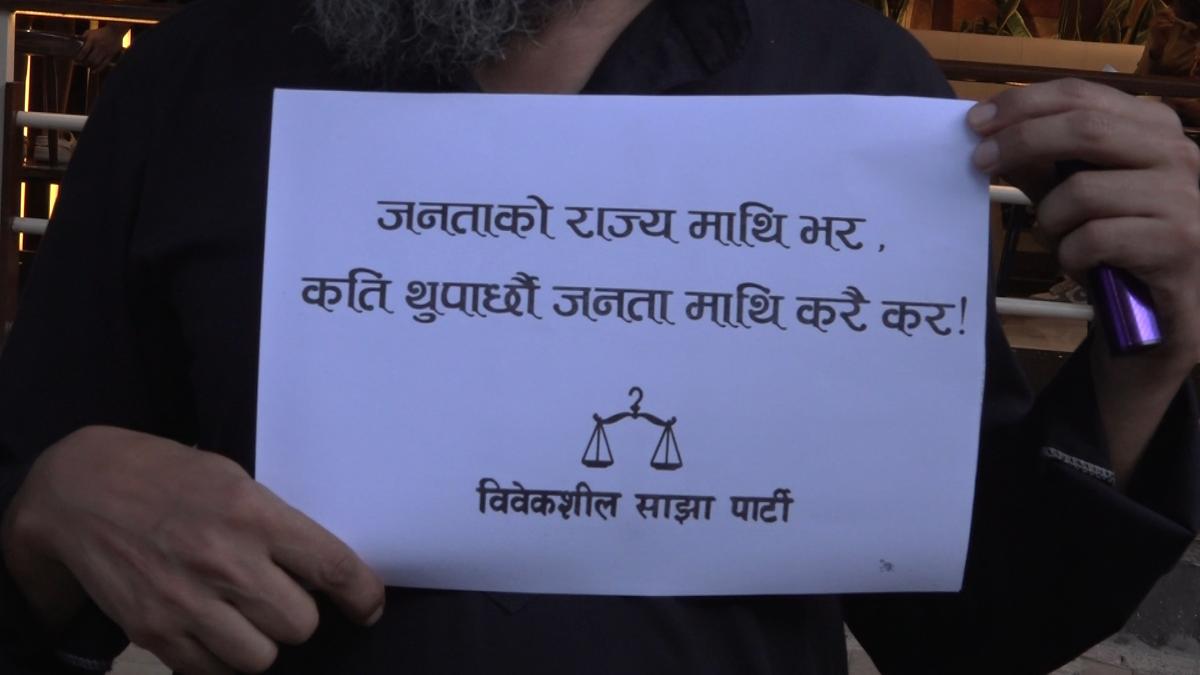 जनताको राज्य माथि भर ,
कति थुपार्छौ जनता माथि करै कर!
विवेकशील साझा पार्टी